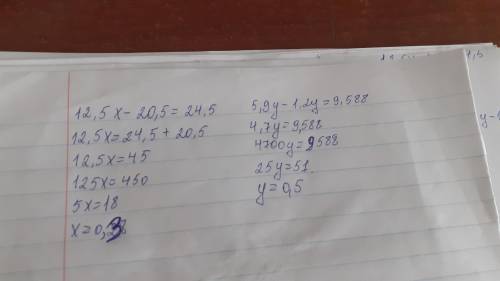 12,5x-20,5=24,5
12,5x=24,5+20,5
12,5x=45
125x=450
5x=18
x=0,3
5,9y-1,2y=9,588
4,7y=9,588
4700y=9588
25y=51
y=0,5